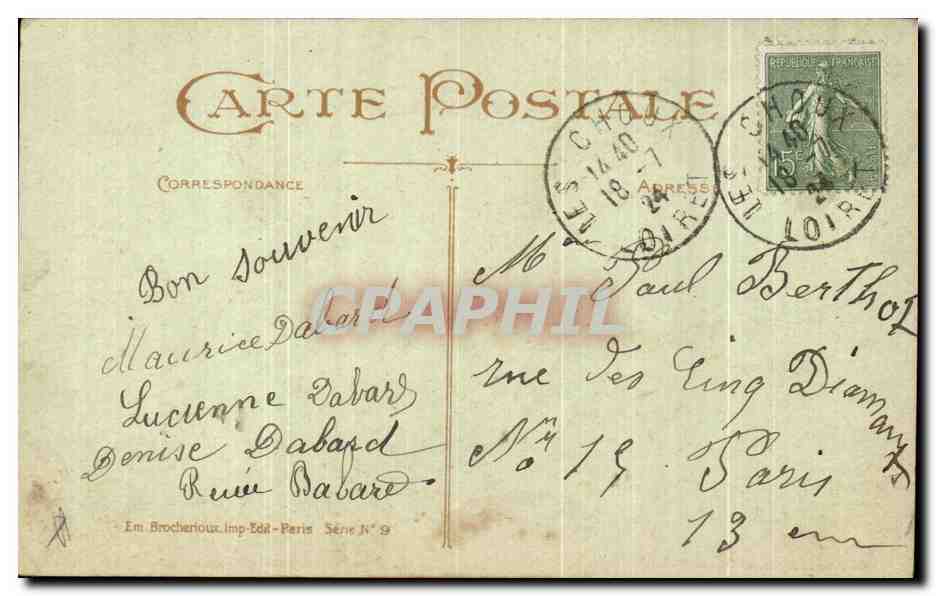 CARTE POSTALE
CORRESPONDANCE
ADRESSE
REPUBLIQUE FRANÇAISE
15c
LES CHOUX
14 40
18 - 7
24
LOIRET
LES CHOUX
14 40
18 - 7
24
LOIRET
Bon souvenir
Maurice Dabard
Lucienne Dabard
Denise Dabard
Renée Dabard
Mr Paul Berthot
rue des Cinq Diamants
Nr 15
Paris
13 em
CPAPHIL
Em. Brocherioux, Imp-Edit-Paris Série N° 9